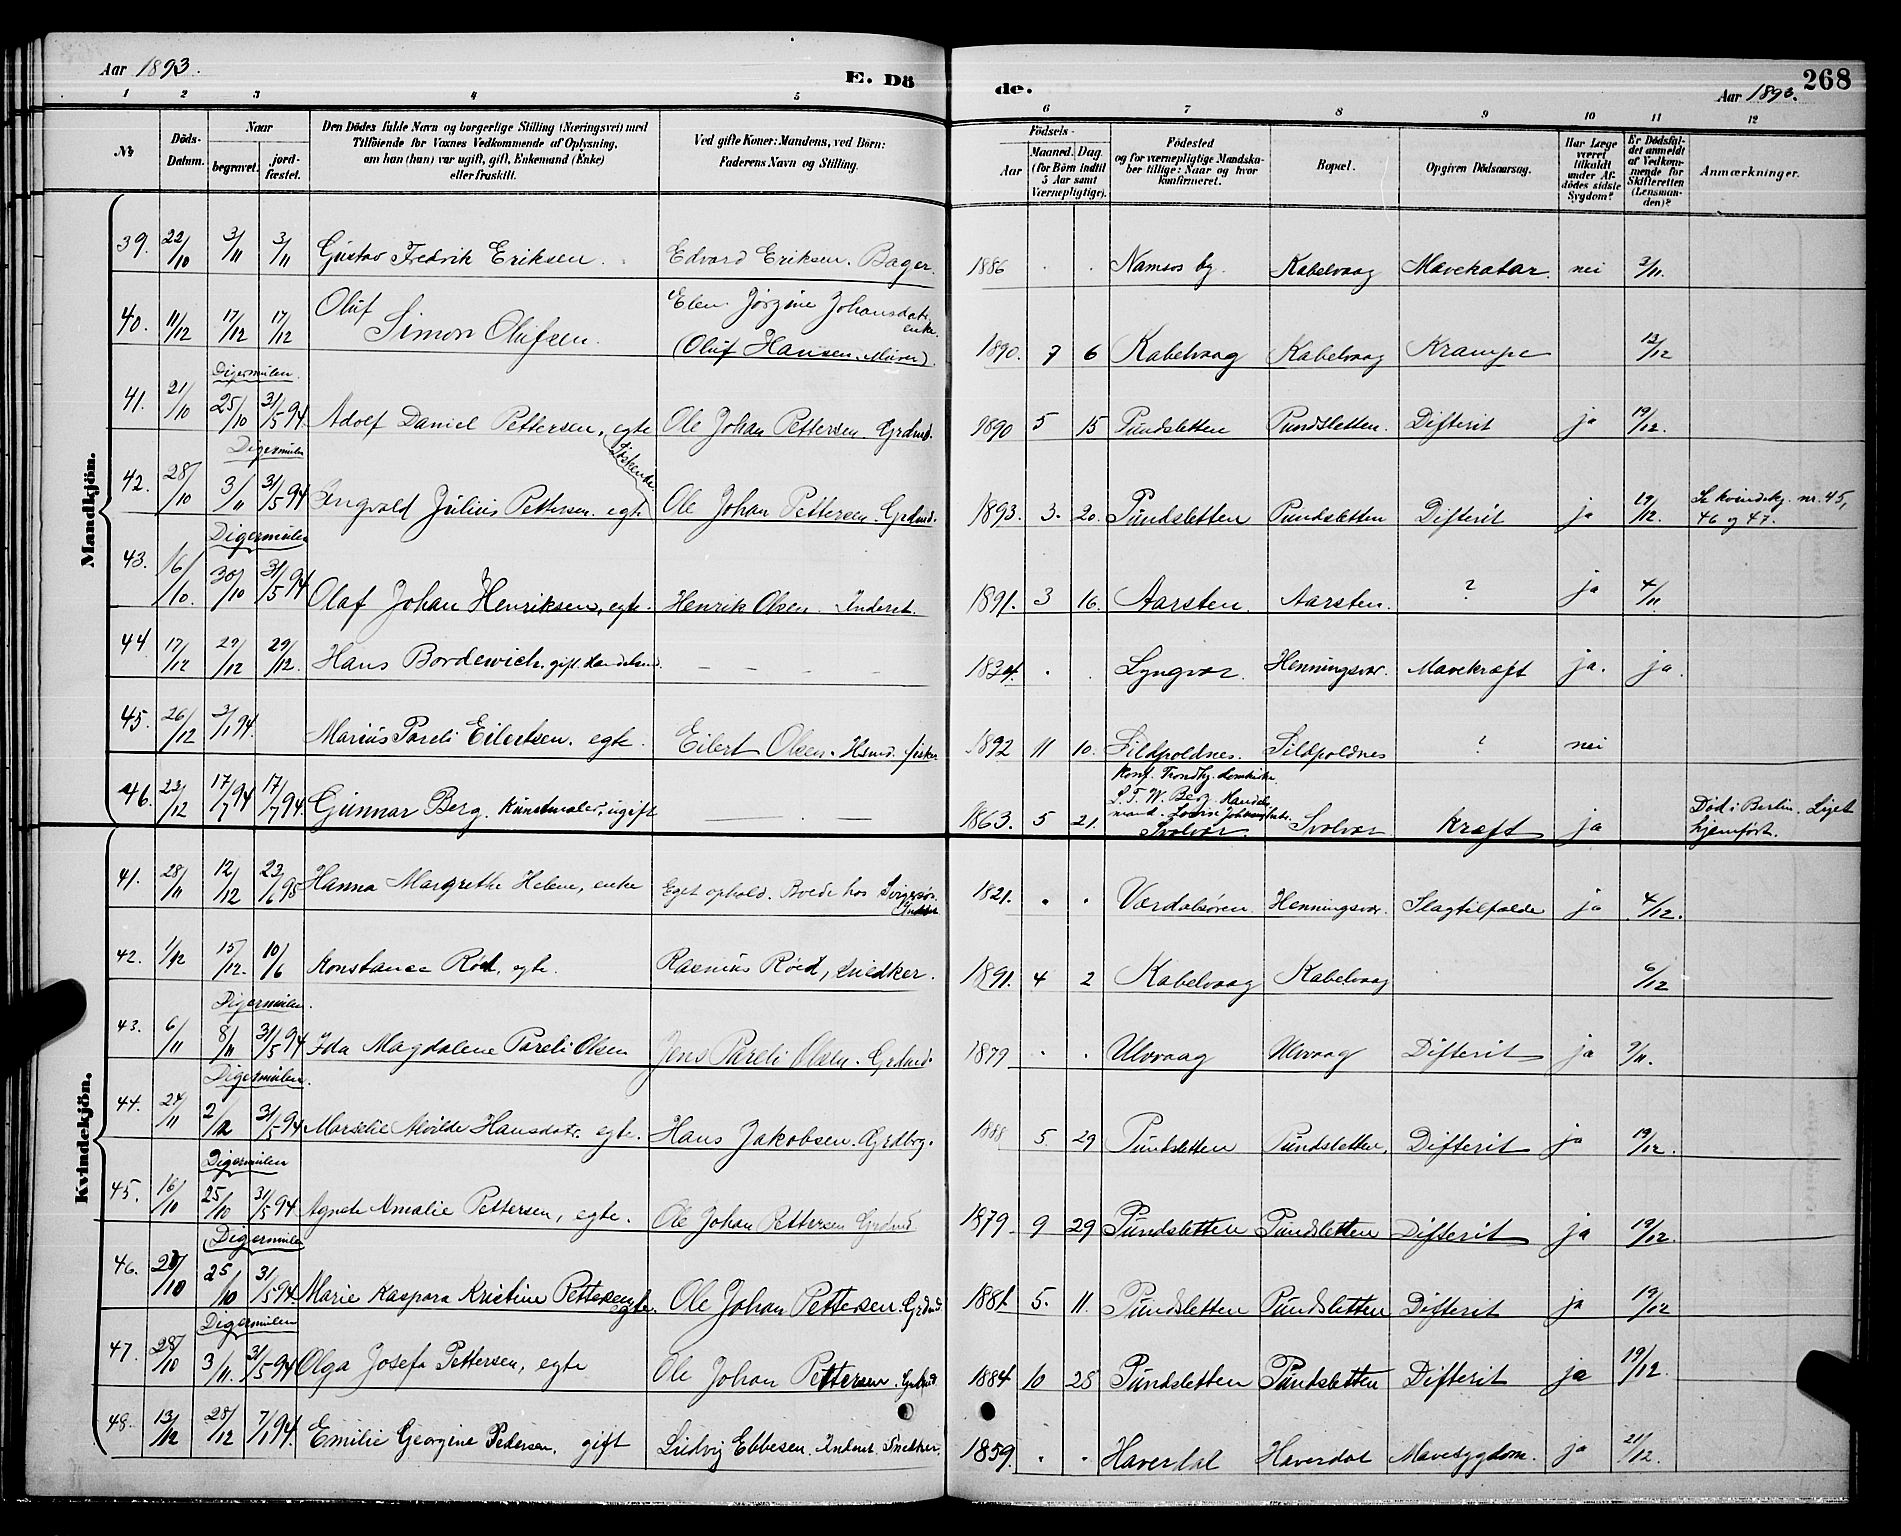 Aar 1893. E. Dö de. Aar 1893. 268
1 2 3 4 5 6 7 8 9 10 11 12
№ Döds-Datum. Naar begravet. jordfæstet. Den Dödes fulde Navn og borgerlige Stilling (Næringsvei) med Tilföiende for Voxnes Vedkommende af Oplysning, om han (hun) var ugift, gift, Enkemand (Enke) eller fraskilt. Ved gifte Koner: Mandens, ved Börn: Faderens Navn og Stilling. Födsels- Aar Maaned. Dag (for Börn indtil 5 Aar samt Værnepligtige). Födested og for værnepligtige Mandskaber tillige: Naar og hvor konfirmeret. Bopæl. Opgiven Dödsaarsag. Har Læge været tilkaldt under Afdödes sidste Sygdom? Er Dödsfaldet anmeldt af Vedkommende for Skifteretten (Lensmanden)? Anmærkninger.
Mandkjön.
39. 22/10 3/11 3/11 Gustav Fredrik Eriksen. Edvard Eriksen. Bager. 1886 . . Namsos by. Kabelvaag Mavekatar nei 3/11.
40. 11/12 17/12 17/12 Oluf Simon Olufsen. Elen Jørgine Johansdatr. enke (Oluf Hansen. Murer). 1890. 7 6 Kabelvaag Kabelvaag Krampe 12/12
Digermulen.
41. 21/10 25/10 31/5 94 Adolf Daniel Pettersen, egte Ole Johan Pettersen. Grdmd. 1890 5 15 Pundsletten Pundsletten. Difterit ja 19/12.
Digermulen
42. 28/10 3/11 31/5 94 Ingvald Julius Pettersen. egte Ole Johan Pettersen. Grdmd. 1893. 3. 20. Pundsletten Pundsletten Difterit ja 19/12. Se kvindekj. nr. 45, 46 og 47.
Digermulen
43. 16/10. 30/10 31/5 94 Olaf Johan Henriksen, egte. Henrik Olsen. Inderst. 1891. 3 16. Aarsten. Aarsten. ? ja 4/11
44 17/12 29/12 29/12. Hans Bordewich. gift. Handelsmd. – – – – 1834. . . Lyngvær. Henningsvær. Mavekræft ja. ja.
45. 26/12 3/1 94. Marius Pareli Eilertsen. egte. Eilert Olsen. Hsmd. fisker 1892 11 10. Sildpoldnes. Sildpoldnes ? nei
46. 23/12 17/7 94 17/7 94. Gunnar Berg. Kunstmaler, ugift – – – 1863. 5 21. Konf. Trondhj. Domkirke. L. T. W. Berg. Handelsmand. Lovise Johnsen Svolvær Svolvær Kræft ja Død i Berlin. Liget hjemført.
Kvindekjön.
41. 28/11 12/12 23/6 95 Hanna Margrethe Helene, enke Eget ophold. Boede hos Svigersøn. 1821. . . Værdalsøren. Henningsvær. Slagtilfælde ja 4/12.
42. 1/12 15/12. 10/6 Konstance Röed, egte. Rasmus Röed, Snedker. 1891. 4 2 Kabelvaag Kabelvaag 6/12
Digermulen.
43. 6/11 8/11 31/5 94 Ida Magdalene Pareli Olsen Jens Pareli Olsen. Grdmd. 1879 . . Ulvvaag Ulvvaag Difterit ja 9/11.
Digermulen.
44. 24/11 2/12 31/5 94 Marselie Alvilde Hansdatr. egte. Hans Jakobsen. Grdbrg. 1888 5. 29 Pundsletten Pundsletten, Difterit ja 19/12.
Digermulen
45. 16/10 25/10 31/5 94 Agnete Amalie Pettersen, egte. Ole Johan Pettersen Grdmd. 1879 9 29 Pundsletten Pundsletten Difterit ja 19/12.
Digermulen
46. 25/10 31/5 94. Marie Kaspara Kristine Pettersen egte. Ole Johan Pettersen. Grdmd. 1881 5. 11. Pundsletten Pundsletten Difterit ja 19/12
Digermulen
47. 28/10 3/11. 31/5 94 Olga Josefa Pettersen, egte Ole Johan Pettersen. Grdmd 1884 10 25 Pundsletten Pundsletten Difterit ja 19/12.
48. 13/12 28/12 7/1 94. Emilie Georgine Pedersen. gift Ludvig Ebbesen. Inderst. Snedker. 1859. . . Haverdal Haverdal Mavesygdom. ja 21/12.